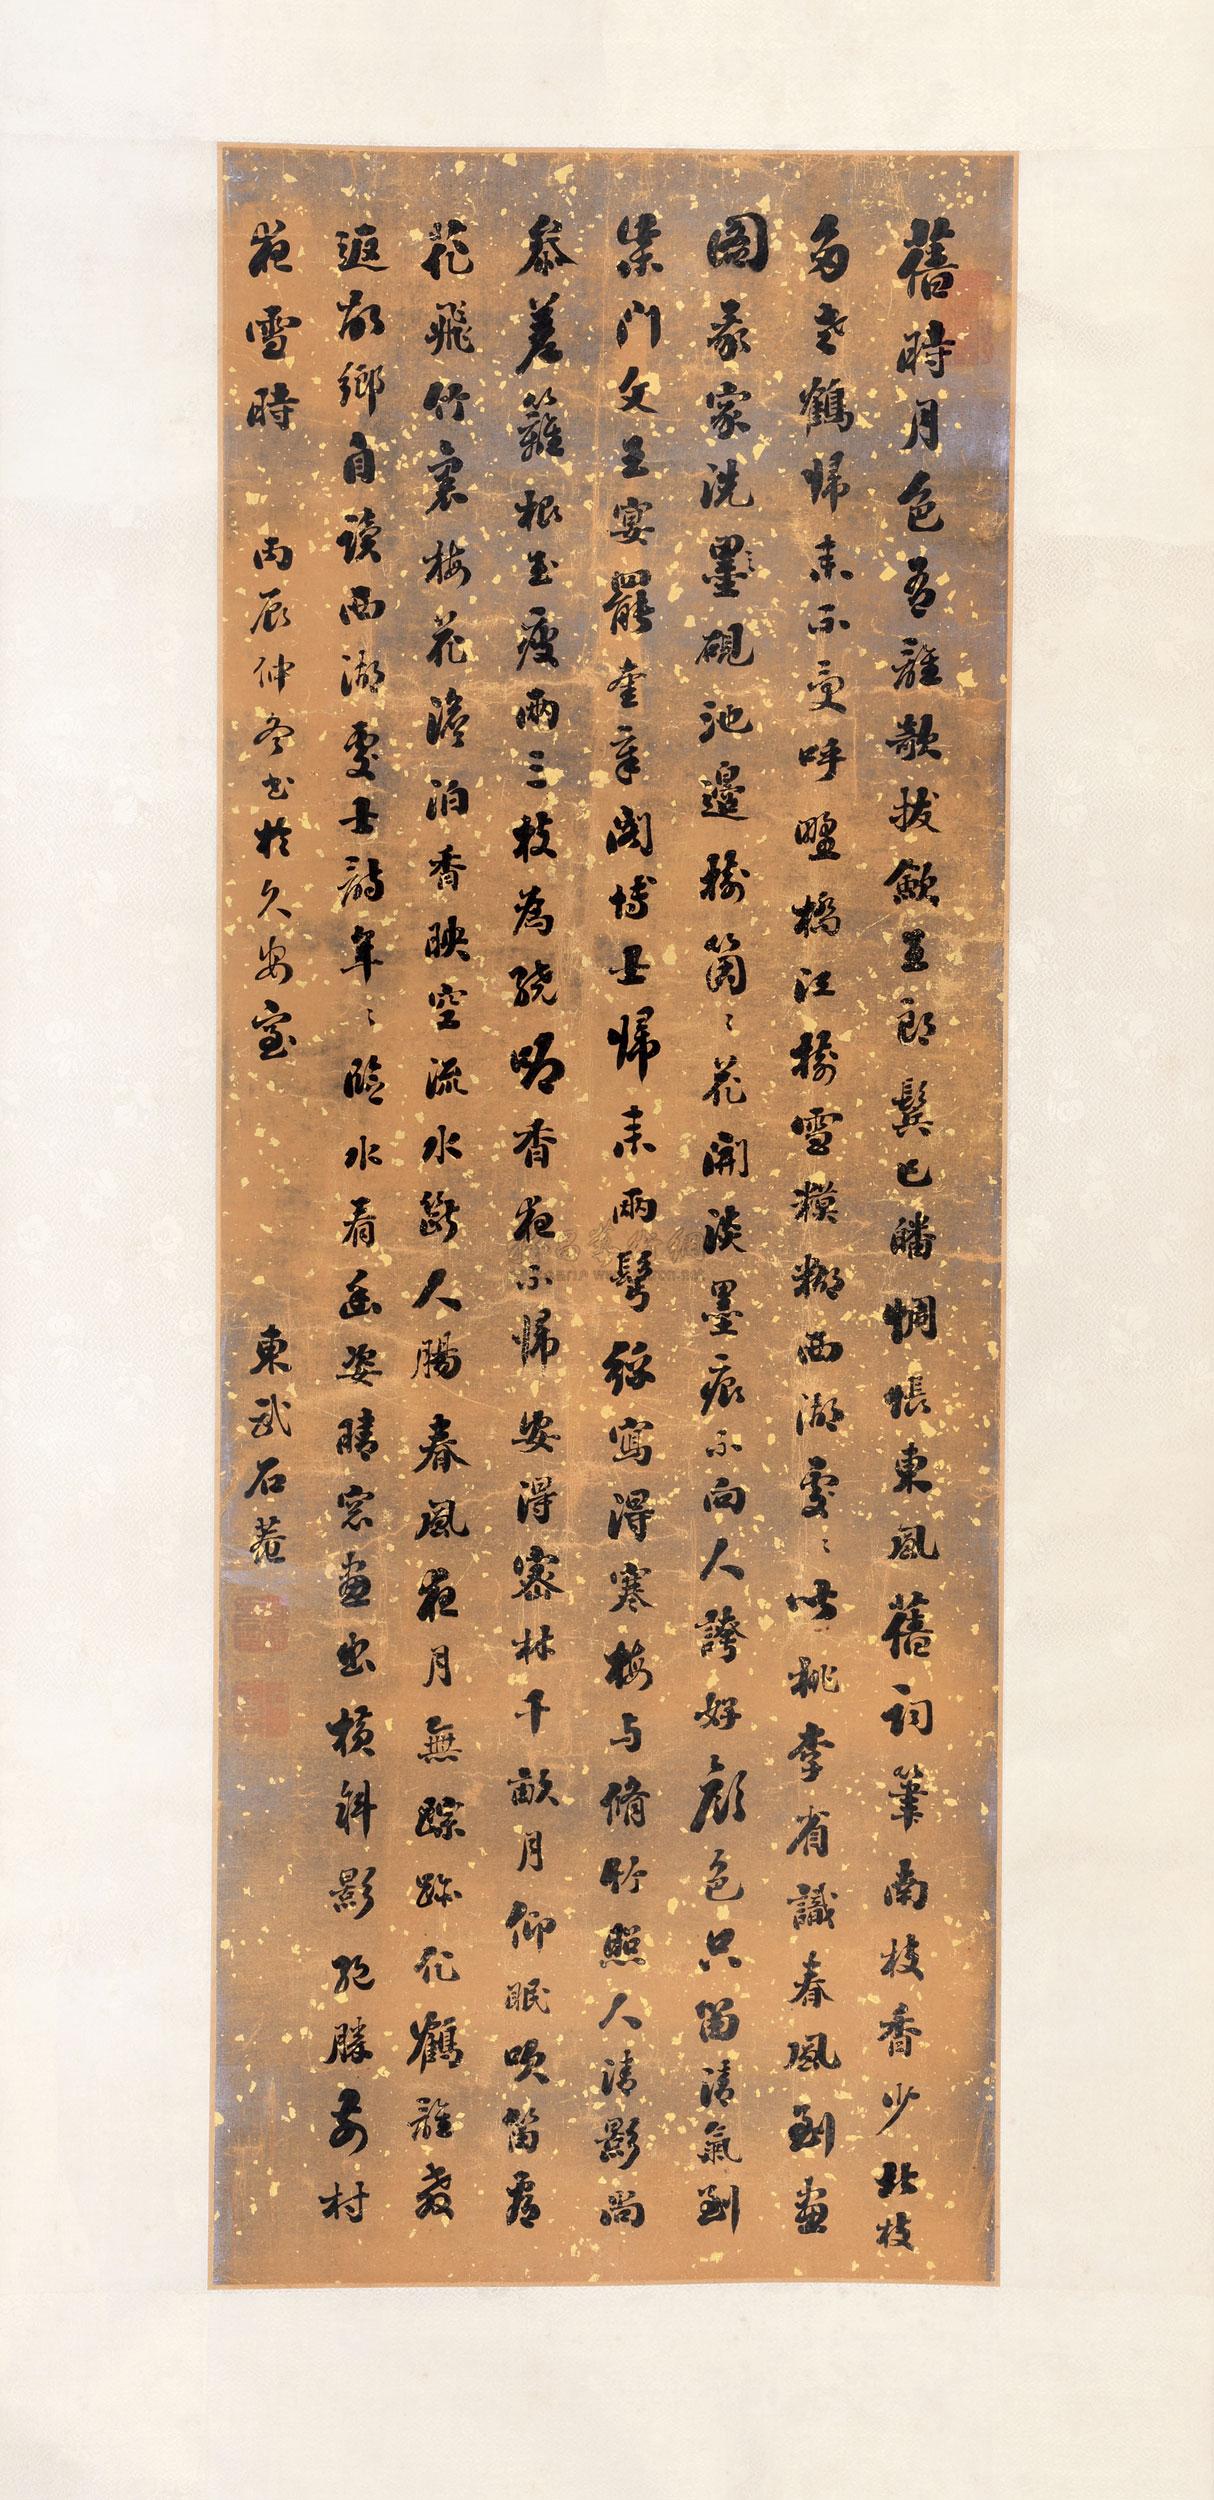 舊時月色有誰歌拔歙王郎鬢已皤惆悵東風舊詞筆南枝香少北枝
多老鶴歸來不受呼野橋江樹雪糢糊西湖處〻皆桃李省識春風到畫
圖我家洗墨〻硯池邊樹箇〻花開淡墨痕不向人誇好顏色只留清氣到
柴門文王宴罷奎章閣博士歸來兩鬢絲寫得寒梅與脩竹照人清影尚
參差籬根玉瘦兩三枝為繞明香夜不歸安得密林千畝月仰眠吹笛看
花飛竹裏梅花澹泊香映空流水斷人腸春風夜月無蹤跡化鶴誰教
返故鄉自讀西湖處士詩年〻臨水看幽姿晴窓畫出橫斜影絕勝前村
夜雪時 丙辰仲冬書於久安室 東武石菴